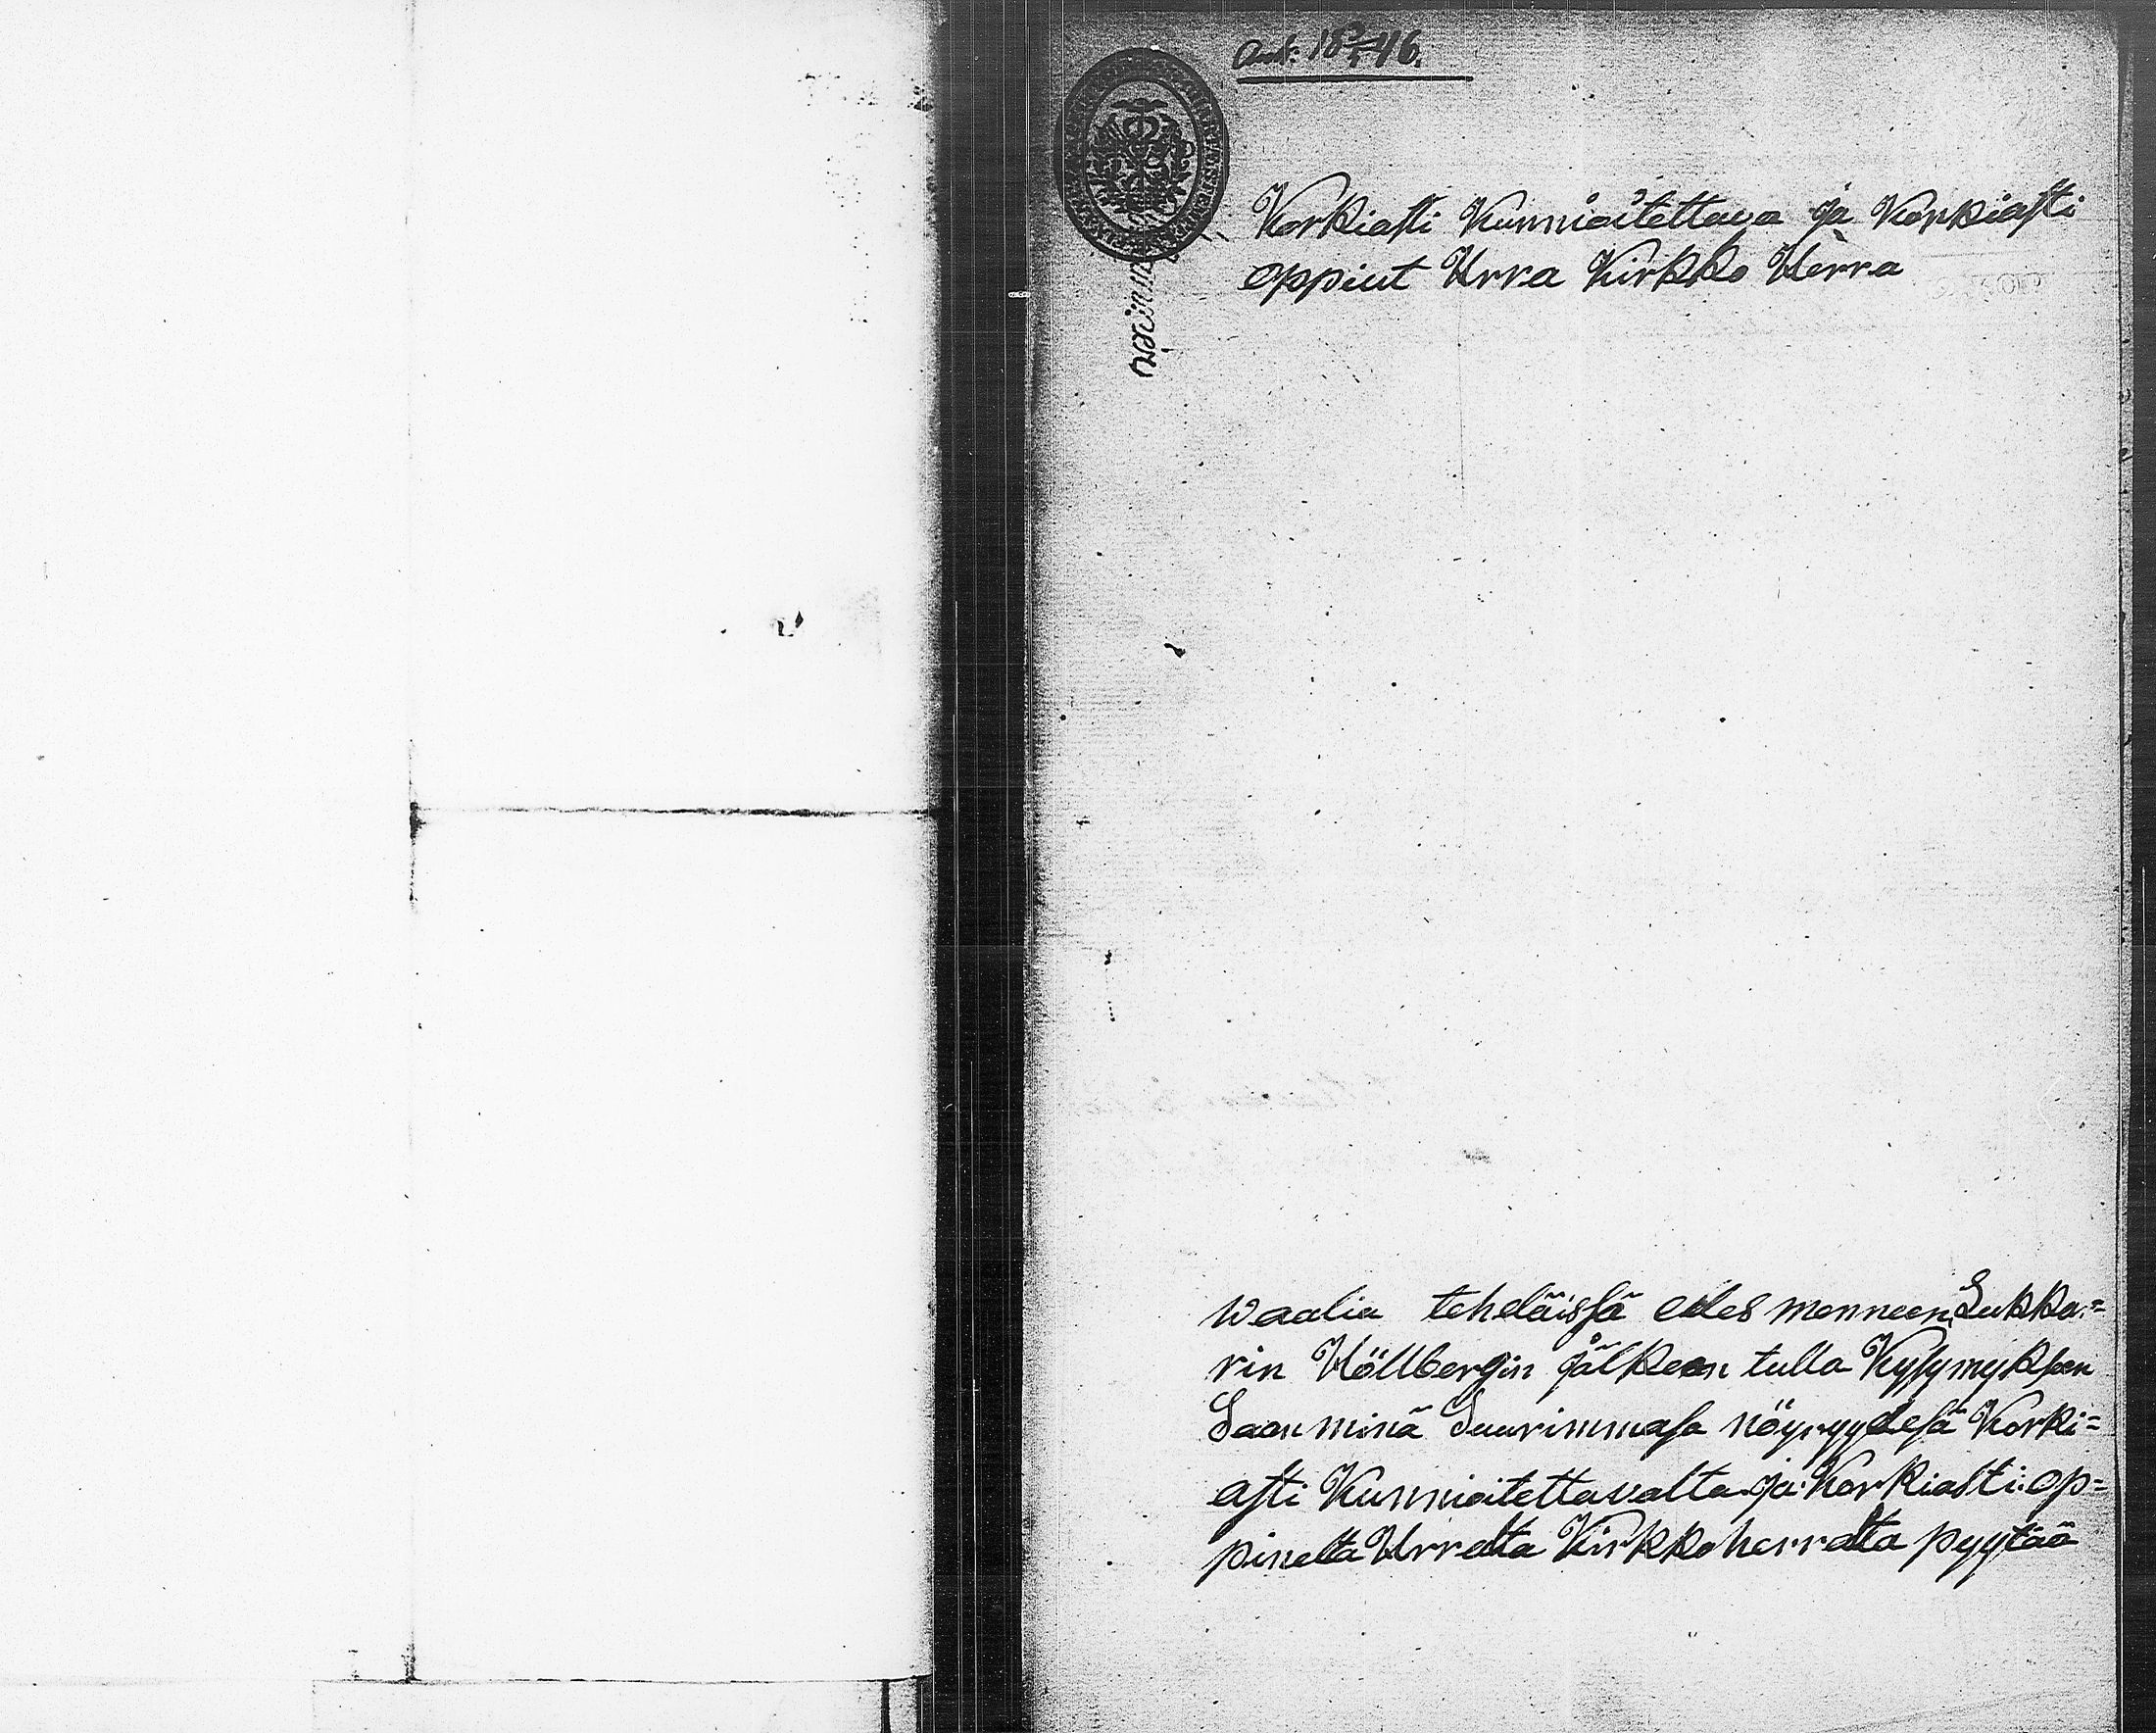 Korkiasti Kunnioitettava ja Korkiasti
oppiut Hrra Kirkko Herra
waalia tehdäissä edes menneen Lukka=
rin Höllbergin jälkeen tulla Kysymykseen
Saan minä Suurimmasa nöyryydesä Korki=
asti Kunnioitettavalta ja Korkiasti op=
pinelta Hrralta Kirkkoherralta pyytää